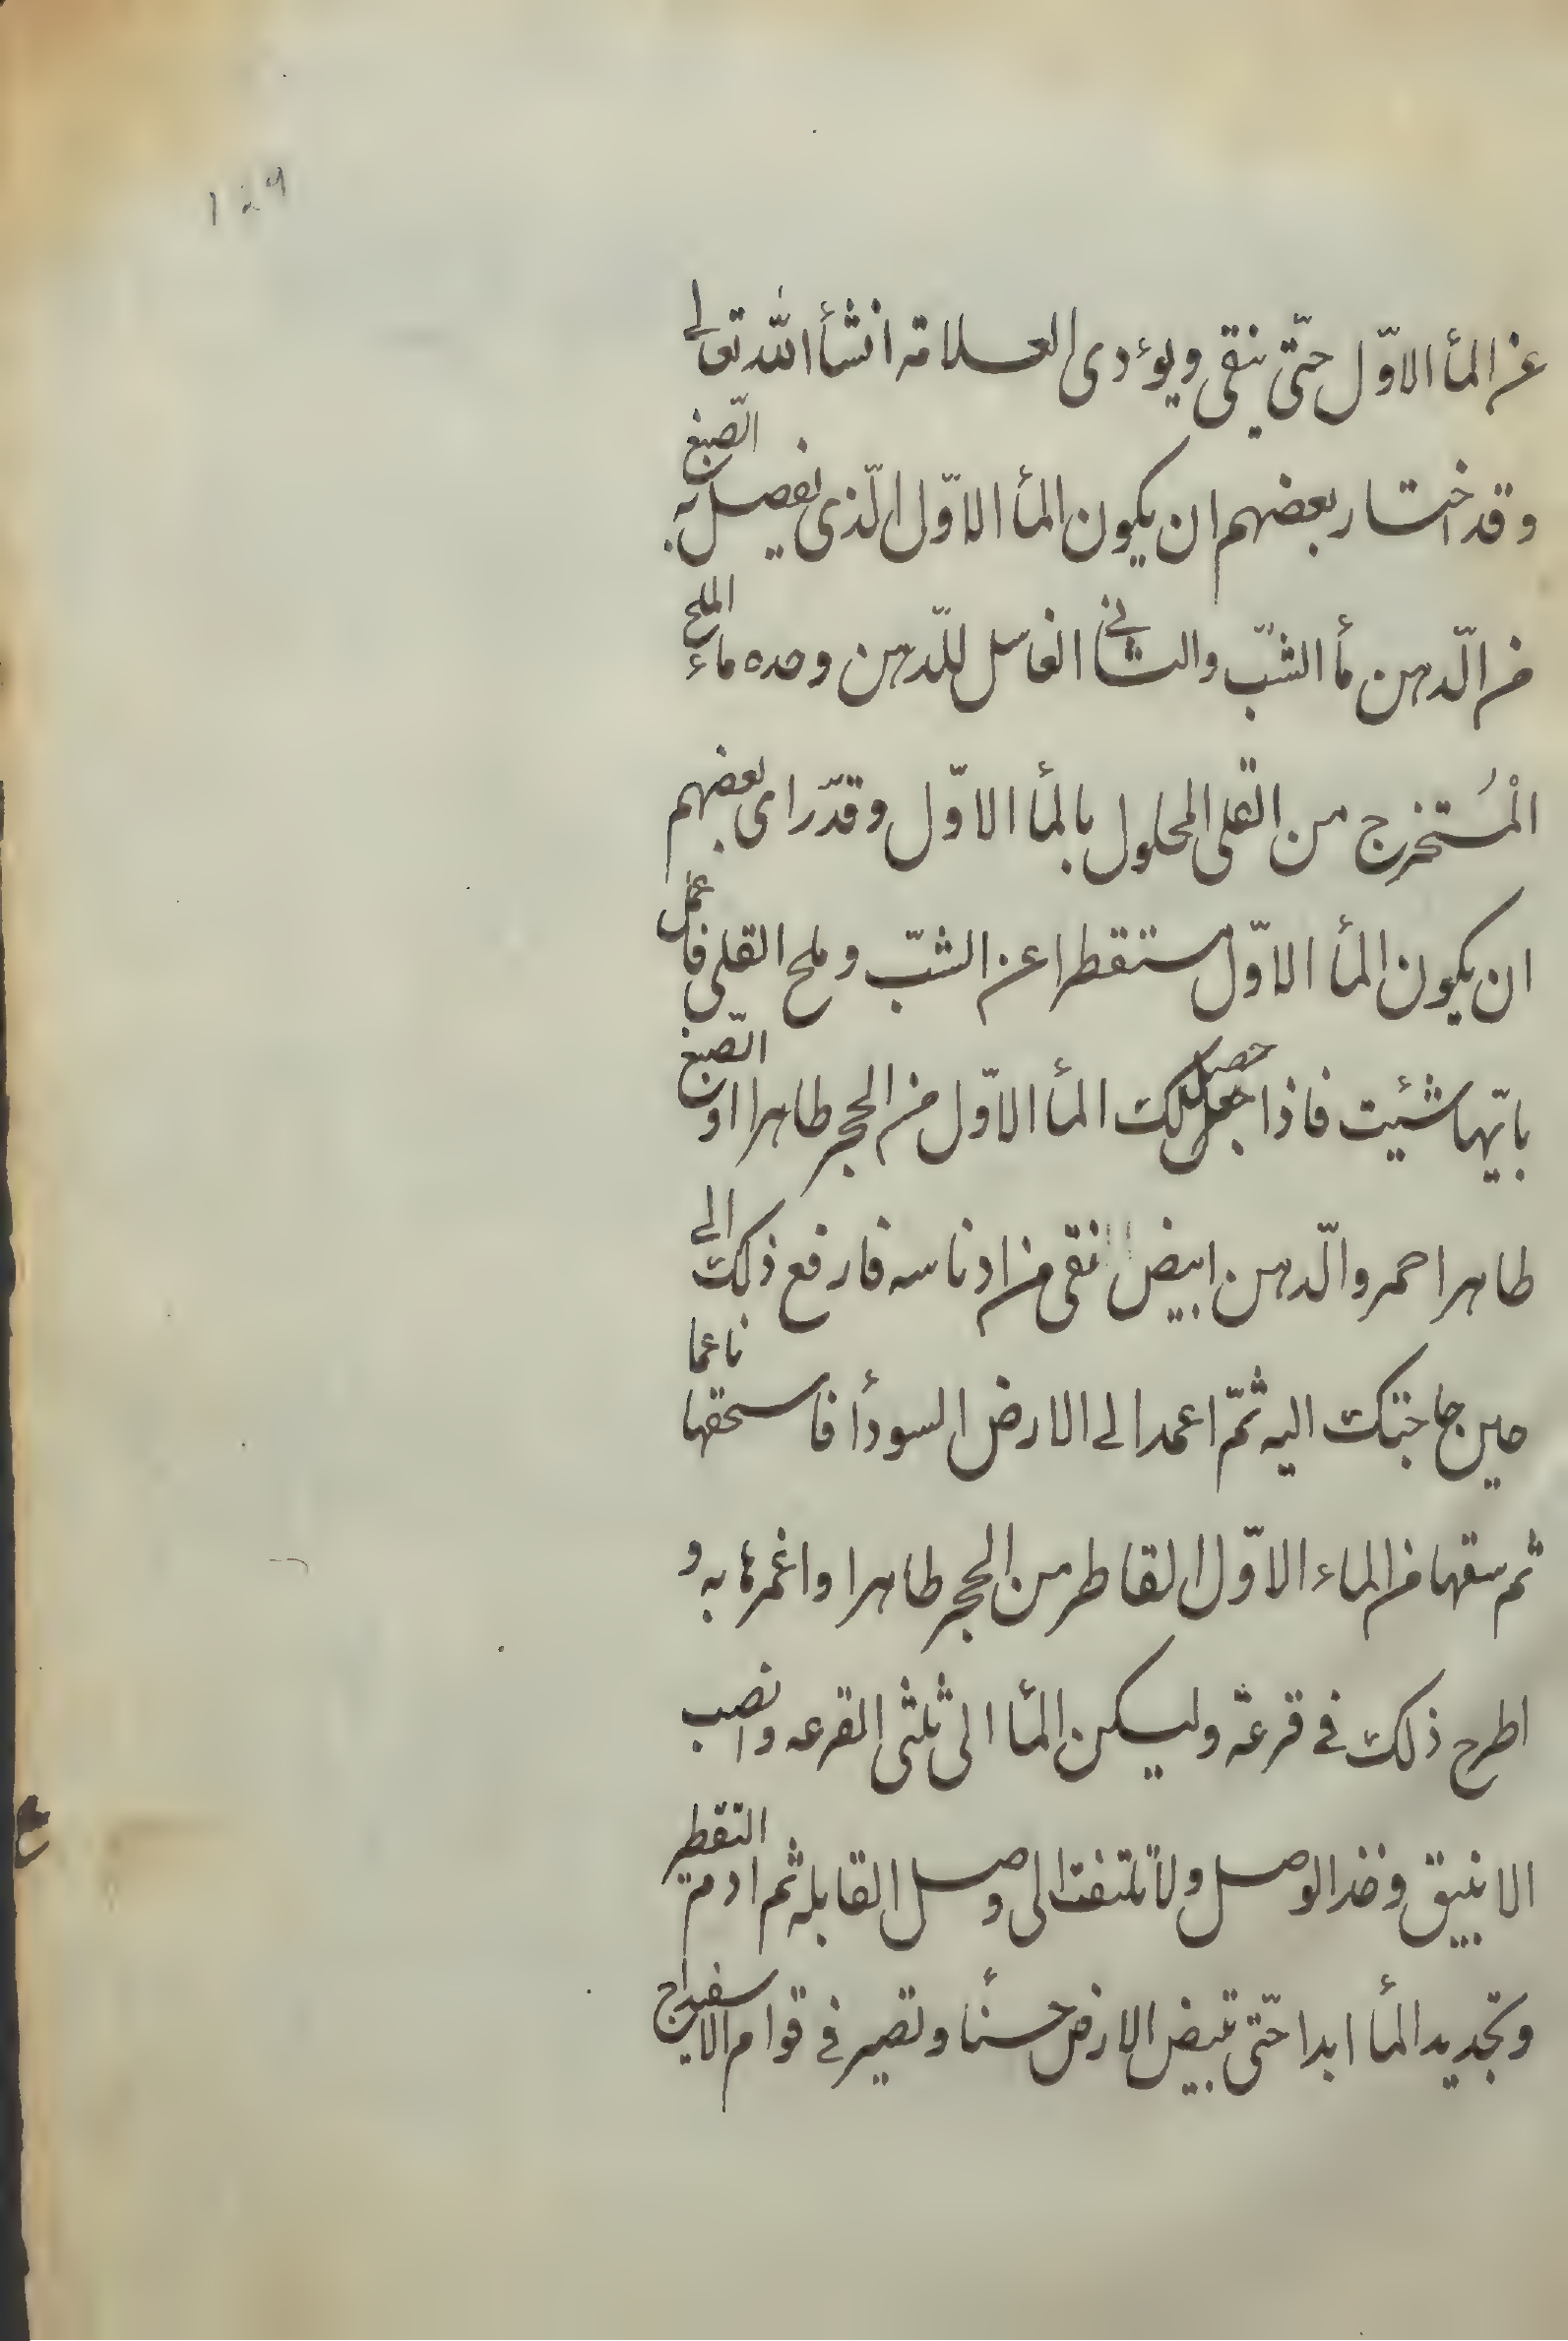 ١٤٩
عن المأ الاوّل حتّى ينقى ويؤدى العلامة انشأ اللّه تعالى
وقد اختار بعضهم ان يكون المأ الاوّل الّذى يفصل به الصّبغ
من الّدهن مأ الشبّ والثانى الغاسل للّدهن وحده ماء الملح
الْمُستخرج من القلى المحلول بالمأ الاوّل وقد راى بعضهم
ان يكون المأ الاوّل مستقطرا عن الشبّ وملح القلى فاعمل
بايّهما شئيت فاذا حصل لك المأ الاوّل من الحجر طاهرا او الصّبغ
طاهرا احمر والّدهن ابيض انقى من ادناسه فارفع ذلك الى
حين حاجتك اليه ثمّ اعمد الى الارض السودأ فاسحقها ناعما
ثم سقها من الماء الاوّل القاطر من الحجر طاهرا واغمرها به و
اطرح ذلك فى قرعة وليكن المأ الى ثلثى القرعه وانصب
الانبيق وخذ الوصل ولا تلتفت الى وصل القابله ثم ادم التقطير
وتجديد المأ ابدا حتّى تبيض الارض حسنأ وتصير فى قوام الاسفيداج